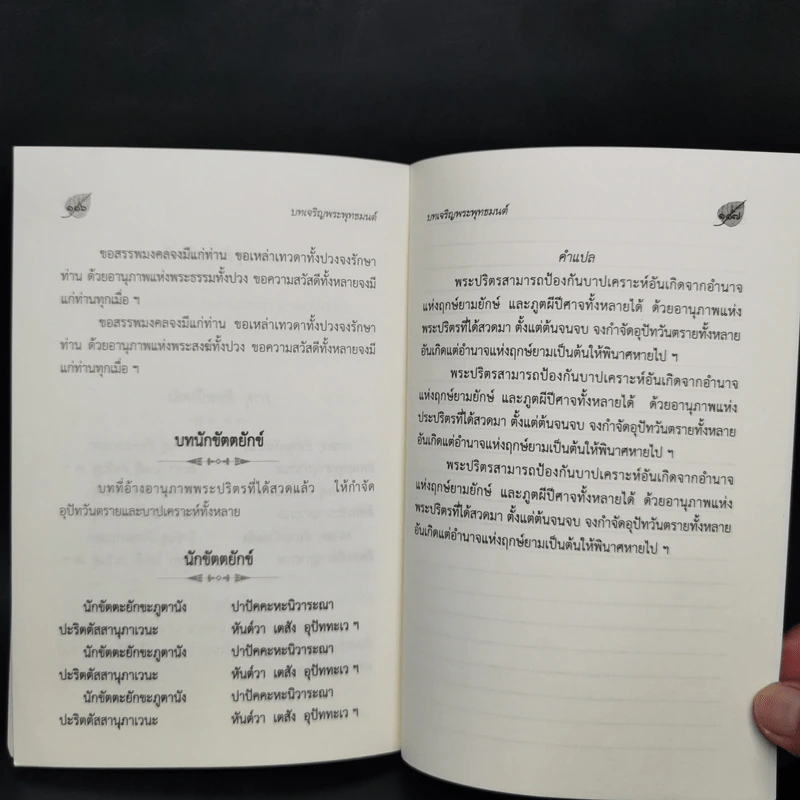 ๑๘๖
บทเจริญพระพุทธมนต์
ขอสรรพมงคลจงมีแก่ท่าน ขอเหล่าเทวดาทั้งปวงจงรักษา
ท่าน ด้วยอานุภาพแห่งพระธรรมทั้งปวง ขอความสวัสดีทั้งหลายจงมี
แก่ท่านทุกเมื่อ ฯ
ขอสรรพมงคลจงมีแก่ท่าน ขอเหล่าเทวดาทั้งปวงจงรักษา
ท่าน ด้วยอานุภาพแห่งพระสงฆ์ทั้งปวง ขอความสวัสดีทั้งหลายจงมี
แก่ท่านทุกเมื่อ ฯ
บทนักขัตตยักข์
บทที่อ้างอานุภาพพระปริตรที่ได้สวดแล้ว ให้กำจัด
อุปัทวันตรายและบาปเคราะห์ทั้งหลาย
นักขัตตยักข์
นักขัตตะยักขะภูตานัง ปาปัคคะหะนิวาระณา
ปะริตตัสสานุภาเวนะ หันต๎วา เตสัง อุปัททะเว ฯ
นักขัตตะยักขะภูตานัง ปาปัคคะหะนิวาระณา
ปะริตตัสสานุภาเวนะ หันต๎วา เตสัง อุปัททะเว ฯ
นักขัตตะยักขะภูตานัง ปาปัคคะหะนิวาระณา
ปะริตตัสสานุภาเวนะ หันต๎วา เตสัง อุปัททะเว ฯ
บทเจริญพระพุทธมนต์
๑๘๗
คำแปล
พระปริตรสามารถป้องกันบาปเคราะห์อันเกิดจากอำนาจ
แห่งฤกษ์ยามยักษ์ และภูตผีปีศาจทั้งหลายได้ ด้วยอานุภาพแห่ง
พระปริตรที่ได้สวดมา ตั้งแต่ต้นจนจบ จงกำจัดอุปัทวันตรายทั้งหลาย
อันเกิดแต่อำนาจแห่งฤกษ์ยามเป็นต้นให้พินาศหายไป ฯ
พระปริตรสามารถป้องกันบาปเคราะห์อันเกิดจากอำนาจ
แห่งฤกษ์ยามยักษ์ และภูตผีปีศาจทั้งหลายได้ ด้วยอานุภาพแห่ง
ประปริตรที่ได้สวดมา ตั้งแต่ต้นจนจบ จงกำจัดอุปัทวันตรายทั้งหลาย
อันเกิดแต่อำนาจแห่งฤกษ์ยามเป็นต้นให้พินาศหายไป ฯ
พระปริตรสามารถป้องกันบาปเคราะห์อันเกิดจากอำนาจ
แห่งฤกษ์ยามยักษ์ และภูตผีปีศาจทั้งหลายได้ ด้วยอานุภาพแห่ง
พระปริตรที่ได้สวดมา ตั้งแต่ต้นจนจบ จงกำจัดอุปัทวันตรายทั้งหลาย
อันเกิดแต่อำนาจแห่งฤกษ์ยามเป็นต้นให้พินาศหายไป ฯ